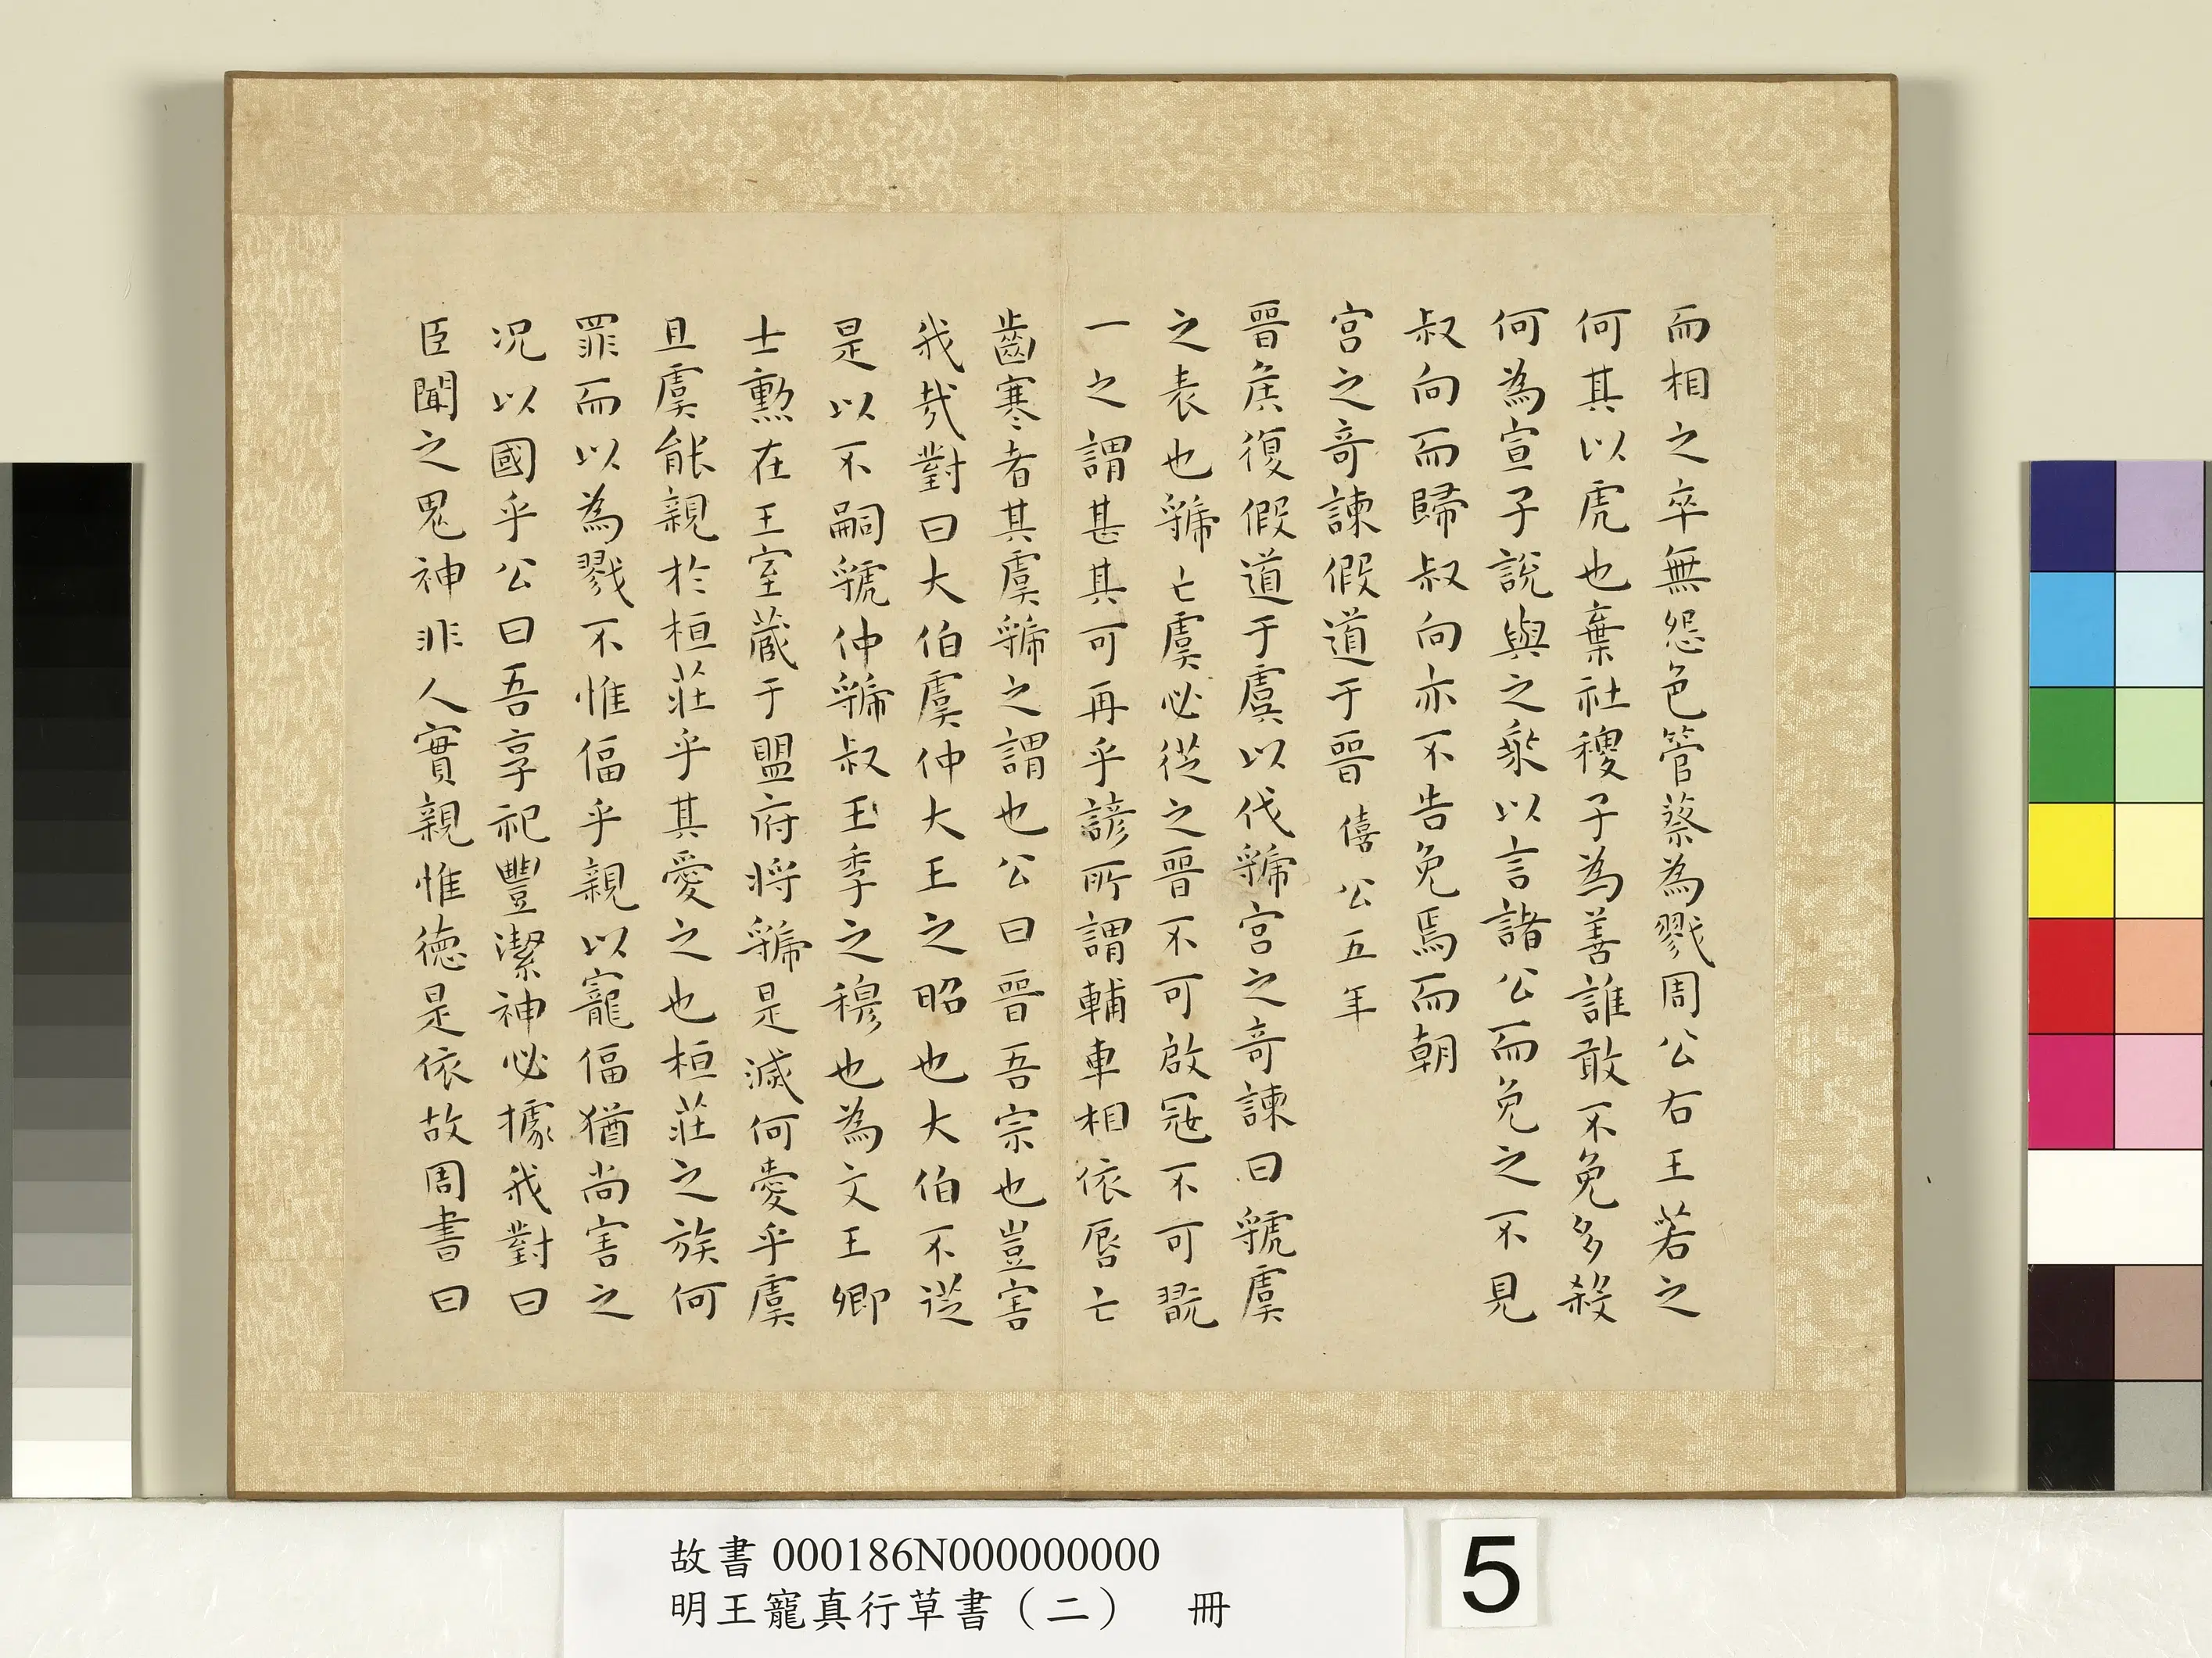 而相之卒無怨色管蔡為戮周公右王若之
何其以虎也棄社稷子為善誰敢不免多殺
何為宣子說與之乘以言諸公而免之不見
叔向而歸叔向亦不告免焉而朝
宮之奇諫假道于晉 僖公五年
晉侯復假道于虞以伐虢宮之奇諫曰虢虞
之表也虢亡虞必從之晉不可啟寇不可翫
一之謂甚其可再乎諺所謂輔車相依唇亡
齒寒者其虞虢之謂也公曰晉吾宗也豈害
我哉對曰大伯虞仲大王之昭也大伯不從
是以不嗣虢仲虢叔王季之穆也為文王卿
士勲在王室藏于盟府將虢是滅何愛乎虞
且虞能親於桓莊乎其愛之也桓莊之族何
罪而以為戮不惟偪乎親以寵偪猶尚害之
況以國乎公曰吾享祀豐潔神必據我對曰
臣聞之鬼神非人實親惟德是依故周書曰
故書 000186N000000000
明王寵真行草書（二） 冊
5